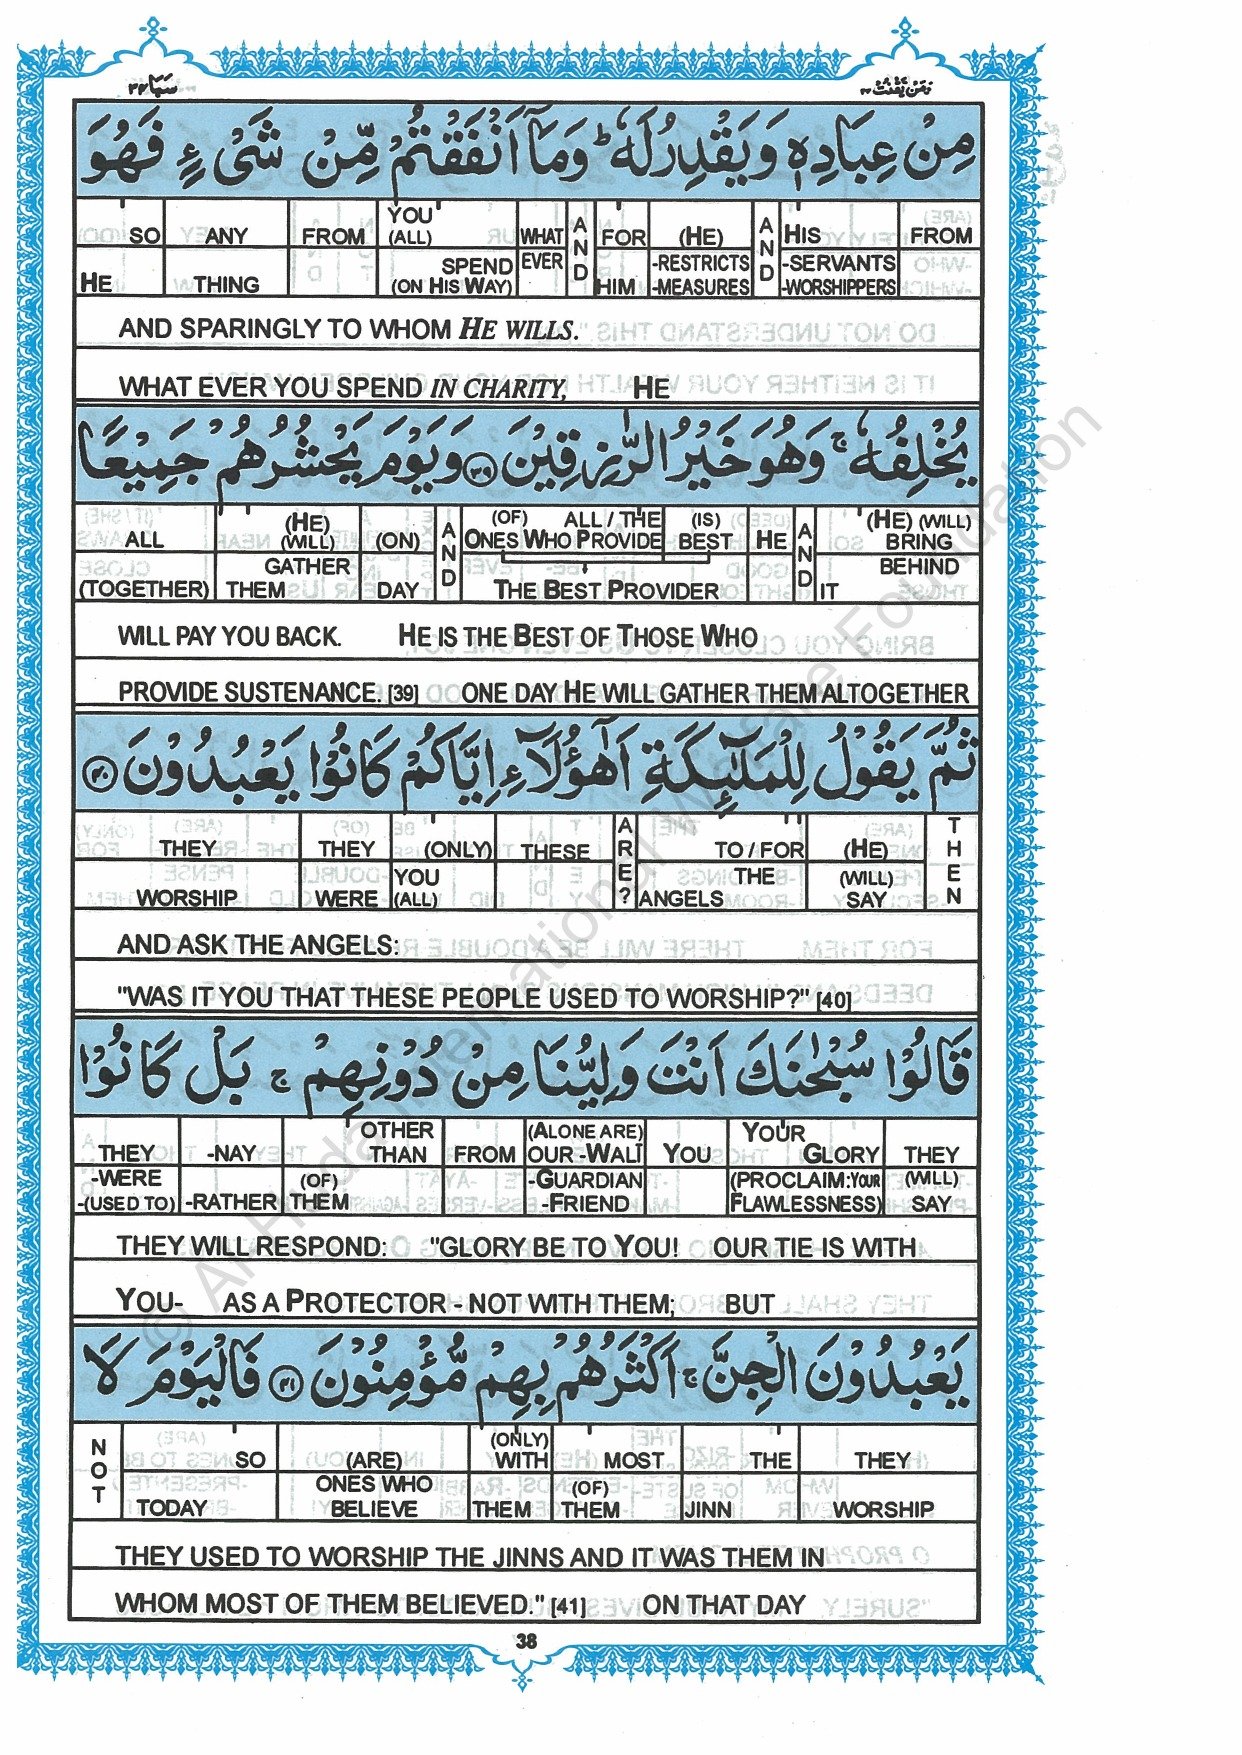 سبا ٣٤ ومن يقنت ٢٢
مِنْ عِبَادِهٖ وَيَقْدِرُ لَهٗ ؕ وَمَآ اَنْفَقْتُمْ مِّنْ شَیْءٍ فَهُوَ
SO ANY FROM YOU (ALL) WHAT EVER AND FOR (HE) AND HIS FROM
HE THING SPEND (ON HIS WAY) HIM -RESTRICTS -MEASURES -SERVANTS -WORSHIPPERS
AND SPARINGLY TO WHOM HE WILLS.
WHAT EVER YOU SPEND IN CHARITY, HE
يُخْلِفُهٗ ۚ وَهُوَ خَيْرُ الرّٰزِقِيْنَ ﴿٣٩﴾ وَيَوْمَ يَحْشُرُهُمْ جَمِيْعًا
ALL (HE) (WILL) (ON) AND (OF) ALL / THE (IS) HE AND (HE) (WILL)
(TOGETHER) GATHER THEM DAY ONES WHO PROVIDE BEST BRING BEHIND IT
THE BEST PROVIDER
WILL PAY YOU BACK. HE IS THE BEST OF THOSE WHO
PROVIDE SUSTENANCE. [39] ONE DAY HE WILL GATHER THEM ALTOGETHER
ثُمَّ يَقُوْلُ لِلْمَلٰٓئِكَةِ اَهٰٓؤُلَآءِ اِيَّاكُمْ كَانُوْا يَعْبُدُوْنَ ﴿٤٠﴾
THEY THEY (ONLY) THESE ARE? TO / FOR (HE) THEN
WORSHIP WERE YOU (ALL) THE ANGELS (WILL) SAY
AND ASK THE ANGELS:
"WAS IT YOU THAT THESE PEOPLE USED TO WORSHIP?" [40]
قَالُوْا سُبْحٰنَكَ اَنْتَ وَلِيُّنَا مِنْ دُوْنِهِمْ ۚ بَلْ كَانُوْا
THEY -NAY OTHER THAN FROM (ALONE ARE) OUR -WALI YOU YOUR GLORY THEY
-WERE -(USED TO) -RATHER (OF) THEM -GUARDIAN -FRIEND (PROCLAIM:YOUR FLAWLESSNESS) (WILL) SAY
THEY WILL RESPOND: "GLORY BE TO YOU! OUR TIE IS WITH
YOU- AS A PROTECTOR - NOT WITH THEM; BUT
يَعْبُدُوْنَ الْجِنَّ ۚ اَكْثَرُهُمْ بِهِمْ مُّؤْمِنُوْنَ ﴿٤١﴾ فَالْيَوْمَ لَا
NOT SO (ARE) (ONLY) WITH MOST THE THEY
TODAY ONES WHO BELIEVE THEM (OF) THEM JINN WORSHIP
THEY USED TO WORSHIP THE JINNS AND IT WAS THEM IN
WHOM MOST OF THEM BELIEVED." [41] ON THAT DAY
38